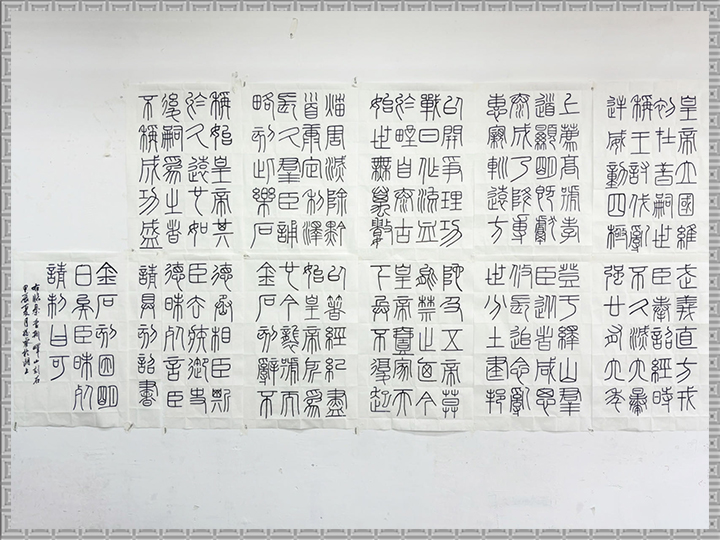 皇帝立國維
初在昔嗣世
稱王討伐亂
逆威動四極
武義直方戎
臣奉詔經時
不久滅六暴
強廿有六年
上薦高號孝
道顯明既獻
泰成乃降專
惠寴巡遠方
登于繹山群
臣從者咸思
攸長追念亂
世分土建邦
以開爭理功
戰日作流血
於野自泰古
始世無萬數
陀及五帝莫
能禁止迺今
皇帝壹家天
下不復起
害滅除黔
首康定利澤
長久群臣誦
略刻此樂石
以箸經紀盡
始皇帝所為
也今襲號而
金石刻辭不
稱始皇帝其
於久遠也如
後嗣為之者
不稱成功盛
德丞相臣斯
臣去疾御史
德昧死言臣
請具刻詔書
金石刻因明
白矣臣昧死
請制曰可
右臨秦李斯嶧山刻石
甲辰夏月